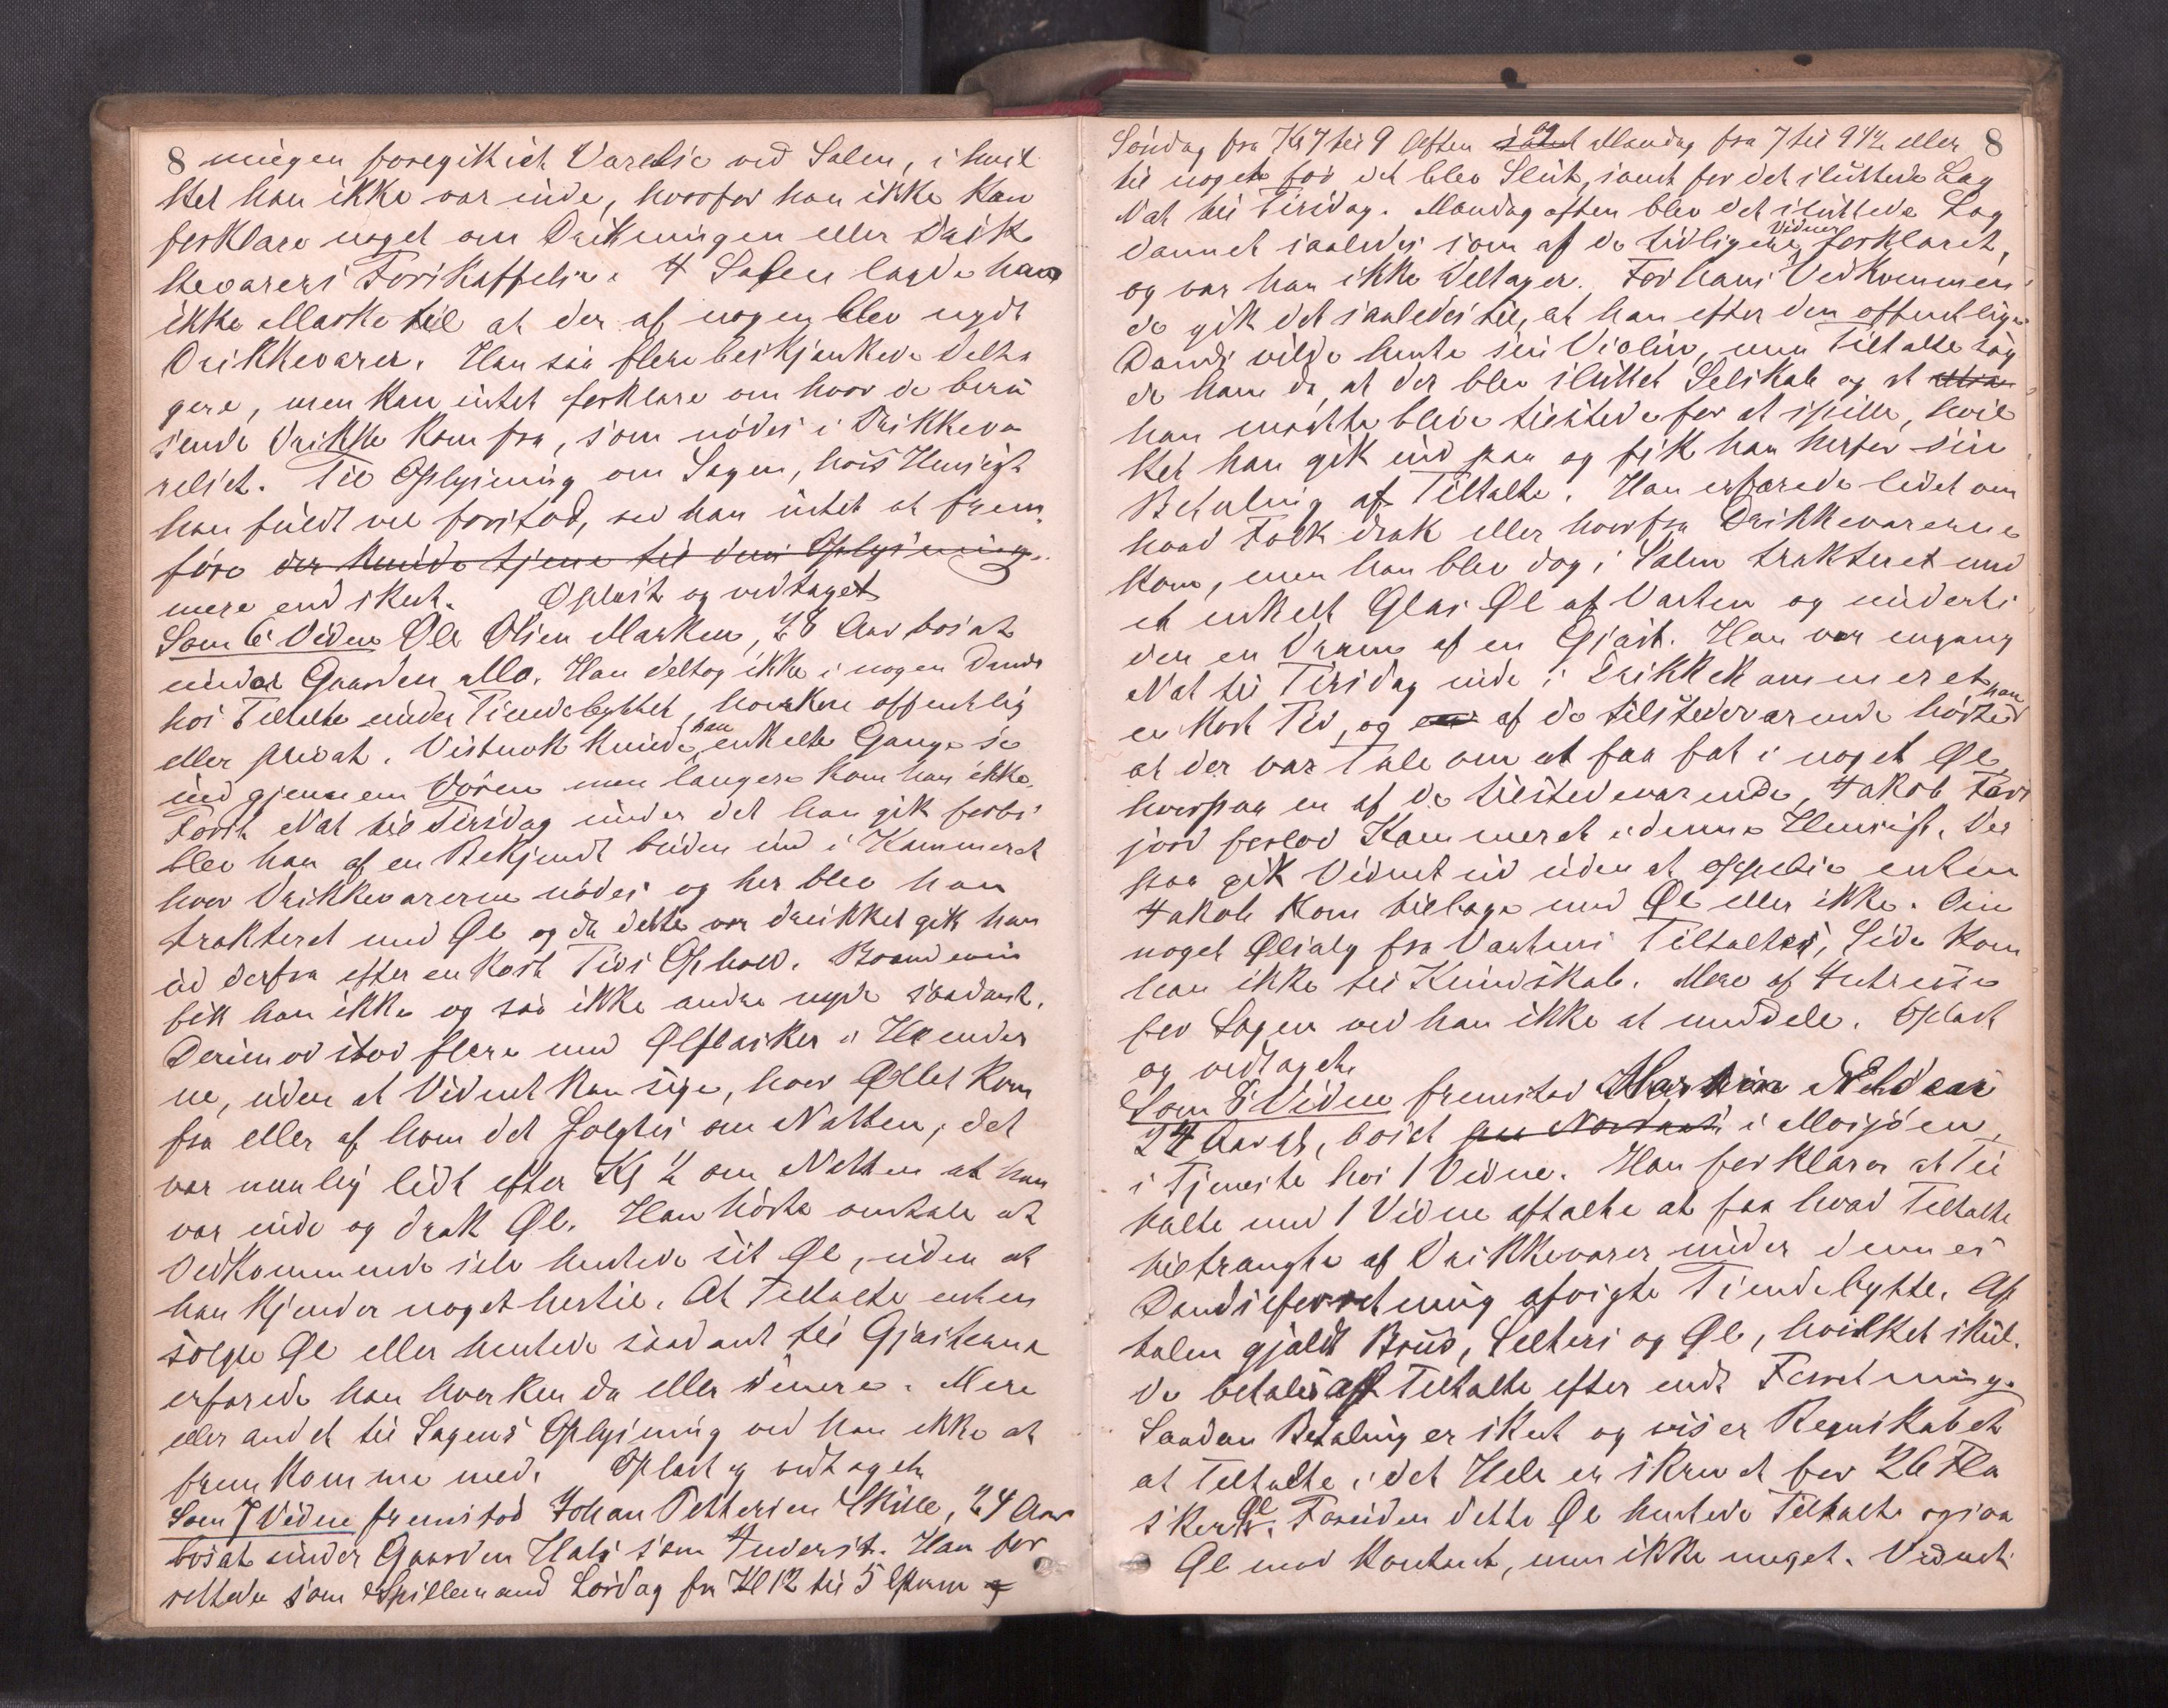 8 ningen foregik i et Værelse ved Salen, i hvil
ket han ikke var inde, hvorfor han ikke kan
forklare noget om Drikningen eller Drik
kevarers Forskaffelse. I Salen lagde han
ikke Mærke til at der af nogen blev nydt
Drikkevarer. Han saa flere beskjænkede Delta
gere, men kan intet forklare om hvor de beru
sende Drikke kom fra, som nødes i Drikkevæ
relset. Til Oplysning om Sagen, hvis Hensigt
han fuldt vel forstod, ved han intet at frem
føre der kunde tjene til dens Oplysning.
mere end skeet. Oplæst og vedtaget
Som 6 Vidne Ole Olsen Marken, 28 Aar bosat
under Gaarden Mo. Han deltog ikke i nogen Dands
hos Tiltalte under Tiendebyttet, hverken offentlig
eller privat. Vistnok kunde han enkelte Gange se
ind gjennem Døren men længere kom han ikke.
Først Nat til Tirsdag under det han gik forbi
blev han af en Bekjendt buden ind i Kammeret
hvor Drikkevarerne nødes og her blev han
trakteret med Øl og da dette var drukket gik han
ud derfra efter en kort Tids Ophold. Brændevin
fik han ikke og saa ikke andre nyde saadant.
Derimod stod flere med Ølflasker i Hænder
ne, uden at Vidnet kan sige, hvor Øllet kom
fra eller af hvem det solgtes om Natten, det
var nemlig lidt efter Kl ½ om Natten at han
var inde og drak Øl. Han hørte omtale at
Vedkommende selv hentede sit Øl, uden at
han kjender noget hertil. At Tiltalte enten
solgte Øl eller hentede saadant til Gjæsterne
erfarede han hverken da eller senere. Mere
eller andet til Sagens Oplysning ved han ikke at
fremkomme med. Oplæst og vedtaget
Som 7 Vidne fremstod Johan Pettersen Skille, 24 Aar
bosat under Gaarden Hals som Inderst. Han for
rettede som Spillemand Lørdag fra Kl 12 til 5 Eftm og
Søndag fra Kl 7 til 9 Aften samt og Mandag fra 7 til 9½ eller 8
til noget før det blev Slut, samt for det sluttede Lag
Nat til Tirsdag. Mandag aften blev det sluttede Lag
dannet saaledes som af de tidligere Vidner forklaret,
og var han ikke Deltager. For hans Vedkommen
de gik det saaledes til, at han efter den offentlige
Dands vilde hente sin Violin, men Tiltalte sag
de ham da, at der blev sluttet Selskab og at
han maatte blive tilstede for at spille, hvil
ket han gik ind paa og fik han herfor sin
Betaling af Tiltalte. Han erfarede lidet om
hvad Folk drak eller hvorfra Drikkevarerne
kom, men han blev dog i Salen trakteret med
et enkelt Glas Øl af Værten og underti
den en Dram af en Gjæst. Han var engang
Nat til Tirsdag inde i Drikkekammeret
en kort Tid, og af de tilstedeværende hørte han
at der var Tale om at faa fat i noget Øl,
hvorpaa en af de tilstedeværende, Jakob
jord forlod Kammeret i denne Hensigt. Der
paa gik Vidnet ud uden at opleve enten
Jakob kom tilbage med Øl eller ikke. Om
noget Ølsalg fra Værtens Tiltaltes Side kom
han ikke til Kundskab. Mere af Interesse
for Sagen ved han ikke at meddele. Oplæst
og vedtaget
Som 8 Vidne fremstod
24 Aar gl, bosat i Mosjøen,
i Tjeneste hos 1 Vidne. Han forklarer at Til
talte med 1 Vidne aftalte at faa hvad Tiltalte
tiltrængte af Drikkevarer under dennes
Dandseforretning afvigte Tiendebytte. Af
talen gjaldt Brus, Selters og Øl, hvilket skul
de betales af Tiltalte efter endt Forretning.
Saadan Betaling er skeet og viser Regnskabet
at Tiltalte i det Hele er skrevet for 26 Fla
sker Øl. Foruden dette Øl hentede Tiltalte ogsaa
Øl mod Kontant, men ikke meget. Vidnet